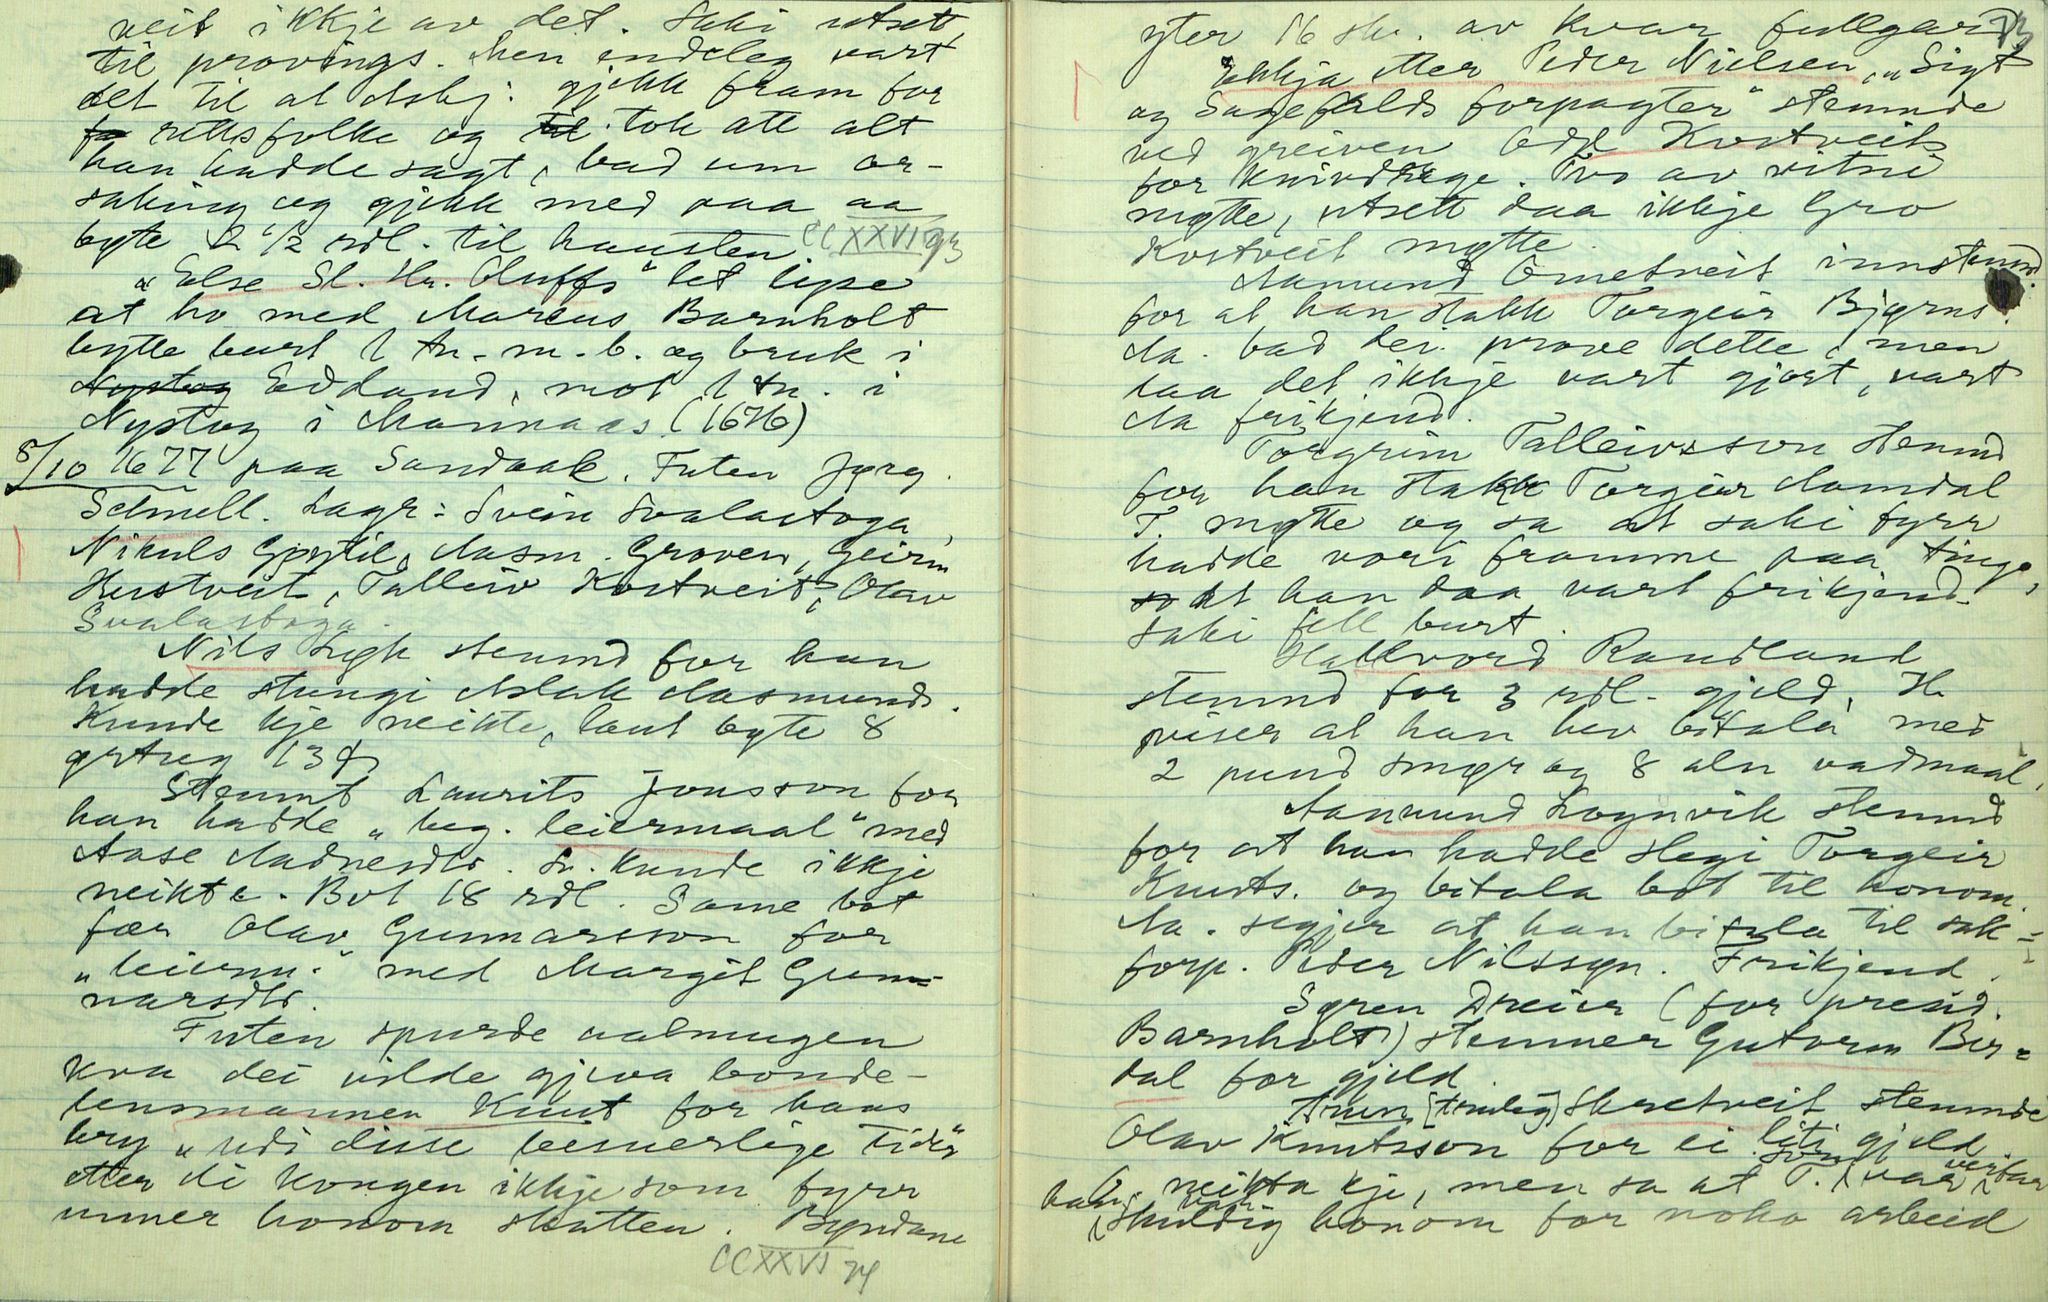 veit ikkje av det. Saki utsett
til provings. Men endeleg vart
det til at Asbj. gjekk fram for
rettsfolke og tok att alt
han hadde sagt, bad um or-
saking og gjekk med paa aa
byte 2 1/2 rdl. til hausten. CCXXVI 93
"Else Sl. Hr. Oluffs" let lyse
at ho med Marcus Barnholt
bytte burt 1 tn. m. b. og bruk i
Nystog Eidland, mot 1 tn. i
Nystog i Mannaas (1676)
8/10 1677 paa Sandaak. Futen Jørg.
Schnell. Lagr: Svein Svalastoga,
Nikuls Gøytil, Aasm. Groven, Geirm
Hustveit, Talleiv Kostveit, Olav
Svalastoga.
Nils Lygk stemnd for han
hadde stungi Aslak Aasmunds.
Kunde kje neikte, laut bøte 8
ørtug 13 β
Stemnt Laurits Jonsson for
han hadde "beg. leiermaal" med
Aase Aadnesdtr. L. kunde ikkje
neikte. Bot 18 rdl. Same bot
fær Olav Gunnarsson for
"leierm." med Margit Gun-
narsdtr.
Futen spurde aalmugen
kva dei vilde gjeva bonde-
lensmannen Knut for hans
bry "udi disse besuerlige tider"
etter di kongen ikkje som fyrr
unner honom skatten. Bøndane
CCXXVI 94
yter 16 sk. av kvar fullgard. 73
Ekkja etter Peder Nielsen, "Sigt
og Sagefalds forpagter" stemnde
ved greiven Odd Kostveit
for kvindsøge. Tvo av vitni
møtte, utsett daa ikkje Gro
Kostveit møtte.
Aamund Ometveit innstemnd
for at han stakk Torgeir Bjørns.
Aa. bad dei prove dette, men
daa det ikkje vart gjort, vart
Aa frikjend.
Torgrim Talleivsson stemnd
for han stakk Torgeir Aamdal
T. møtte og sa at saki fyrr
hadde vori framme paa tinge,
at han daa vart frikjend.
Saki fell burt.
Hallvord Raudland
stemnd for 3 rdl. gjeld. H.
viser at han hev bitala med
2 pund smør og 8 aln vadmaal.
Aanund Lognvik stemnd
for at han hadde slegi Torgeir
Knuts. og bitala bot til honom.
Aa. segjer at han bitala til sak-
forp. Peder Nilssøn. Frikjend.
Søren Dreier (for presid.
Barnholt) stemner Gutorm Bir-
dal for gjeld.
Trun [truleg] Skretveit stemnde
Olav Knutsson for ei liti gjeld
O. neikta kje, men sa at T. var
skuldig honom for noko arbeid